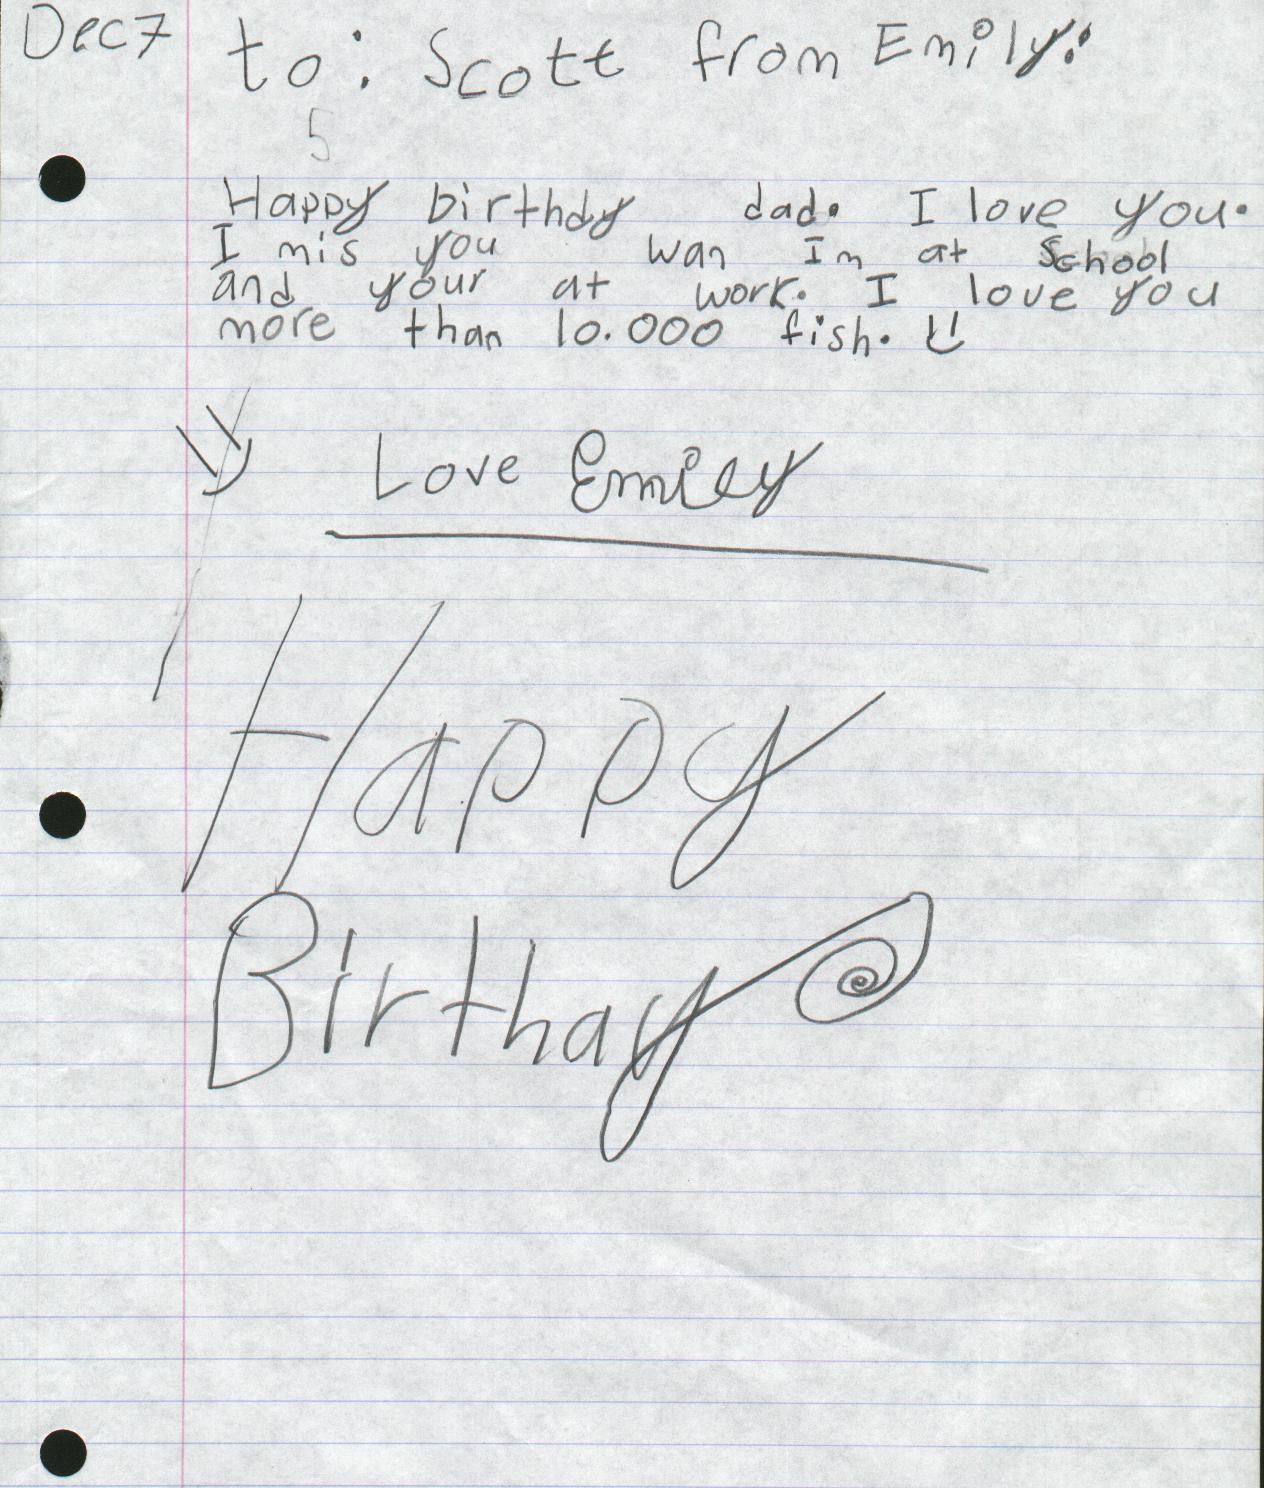 Dec 7
to: Scott from Emily!
5
Happy birthdy dad. I love you.
I mis you wan Im at School
and your at work. I love you
more than 10.000 fish.
Love Emily
Happy
Birthay